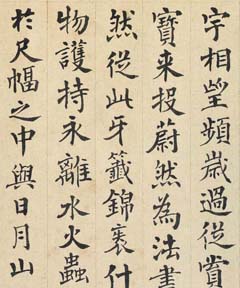 宇相望頻歲過從賞
寶來投蔚然為法書
然從此牙籤錦裹什
物護持永離水火蟲
於尺幅之中與日月山